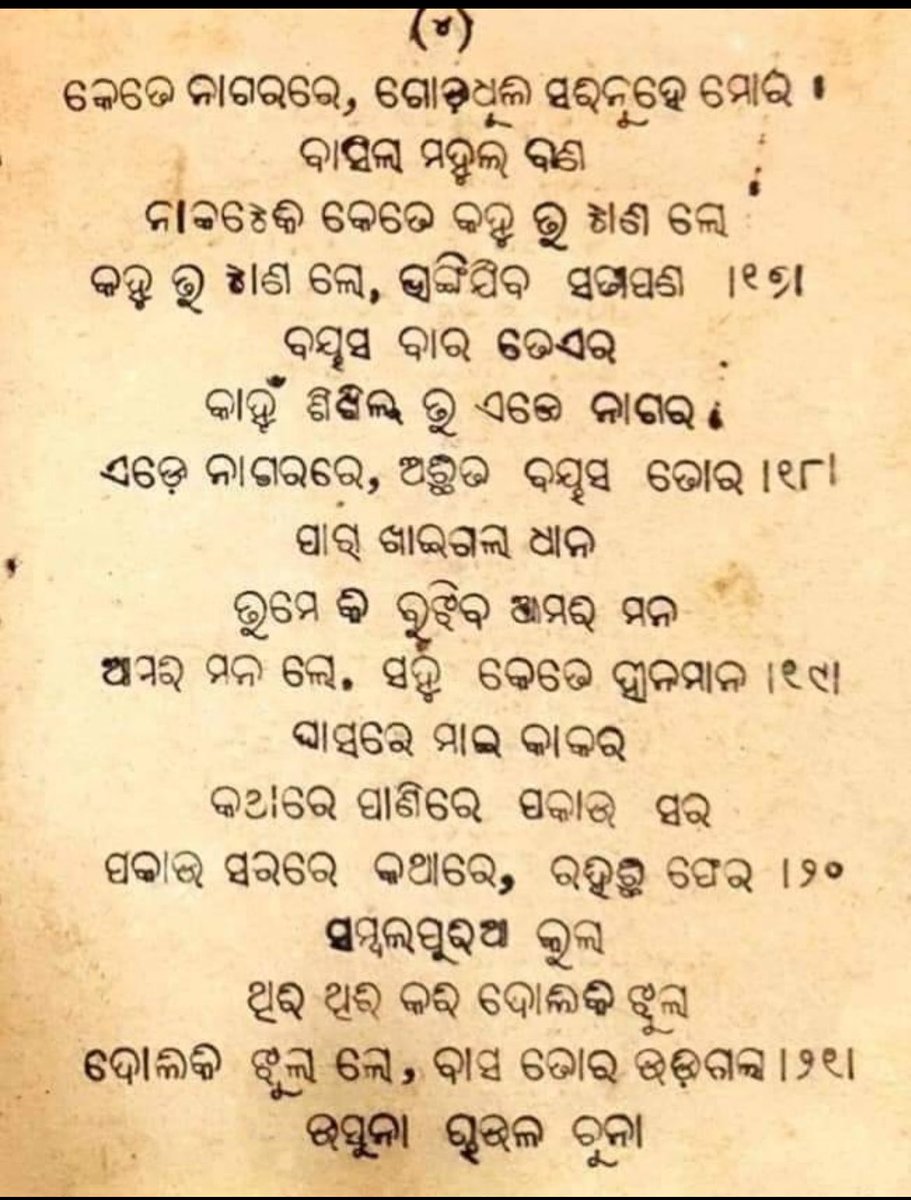 (୪)
କେତେ ନାଗରରେ, ଗୋଡ଼ଧୂଳ ସରିନୁହେ ମୋର ।
ବାସିଲ ମହୁଲ ବଣ
ନାକଟେକି କେତେ କହୁ ତୁ ଟାଣ ଲେ
କହୁ ତୁ ଟାଣ ଲେ, ଭାଙ୍ଗିଯିବ ସତପଣ ।୧୭।
ବୟସ ବାର ତେଏର
କାହୁଁ ଶିଖିଲୁ ତୁ ଏତେ ନାଗର ।
ଏଡ଼େ ନାଗରରେ, ଅଛିତ ବୟସ ତୋର ।୧୮।
ପାରା ଖାଇଗଲା ଧାନ
ତୁମେ କି ବୁଝିବ ଆମର ମନ
ଆମର ମନ ଲେ. ସହୁ କେତେ ହୀନମାନ ।୧୯।
ଘାସରେ ମାଇ କାକର
କଥାରେ ପାଣିରେ ପକାଉ ସର
ପକାଉ ସରରେ କଥାରେ, ରହିଛି ଫେର ।୨୦
ସମ୍ବଲପୁରିଆ କୁଲା
ଥିରି ଥିରି କରି ଦୋଲିକି ଝୁଲ
ଦୋଲିକି ଝୁଲ ଲେ, ବାସ ତୋର ଉଡ଼ିଗଲା ।୨୧।
ଉସୁନା ଚାଉଳ ଚୁନା